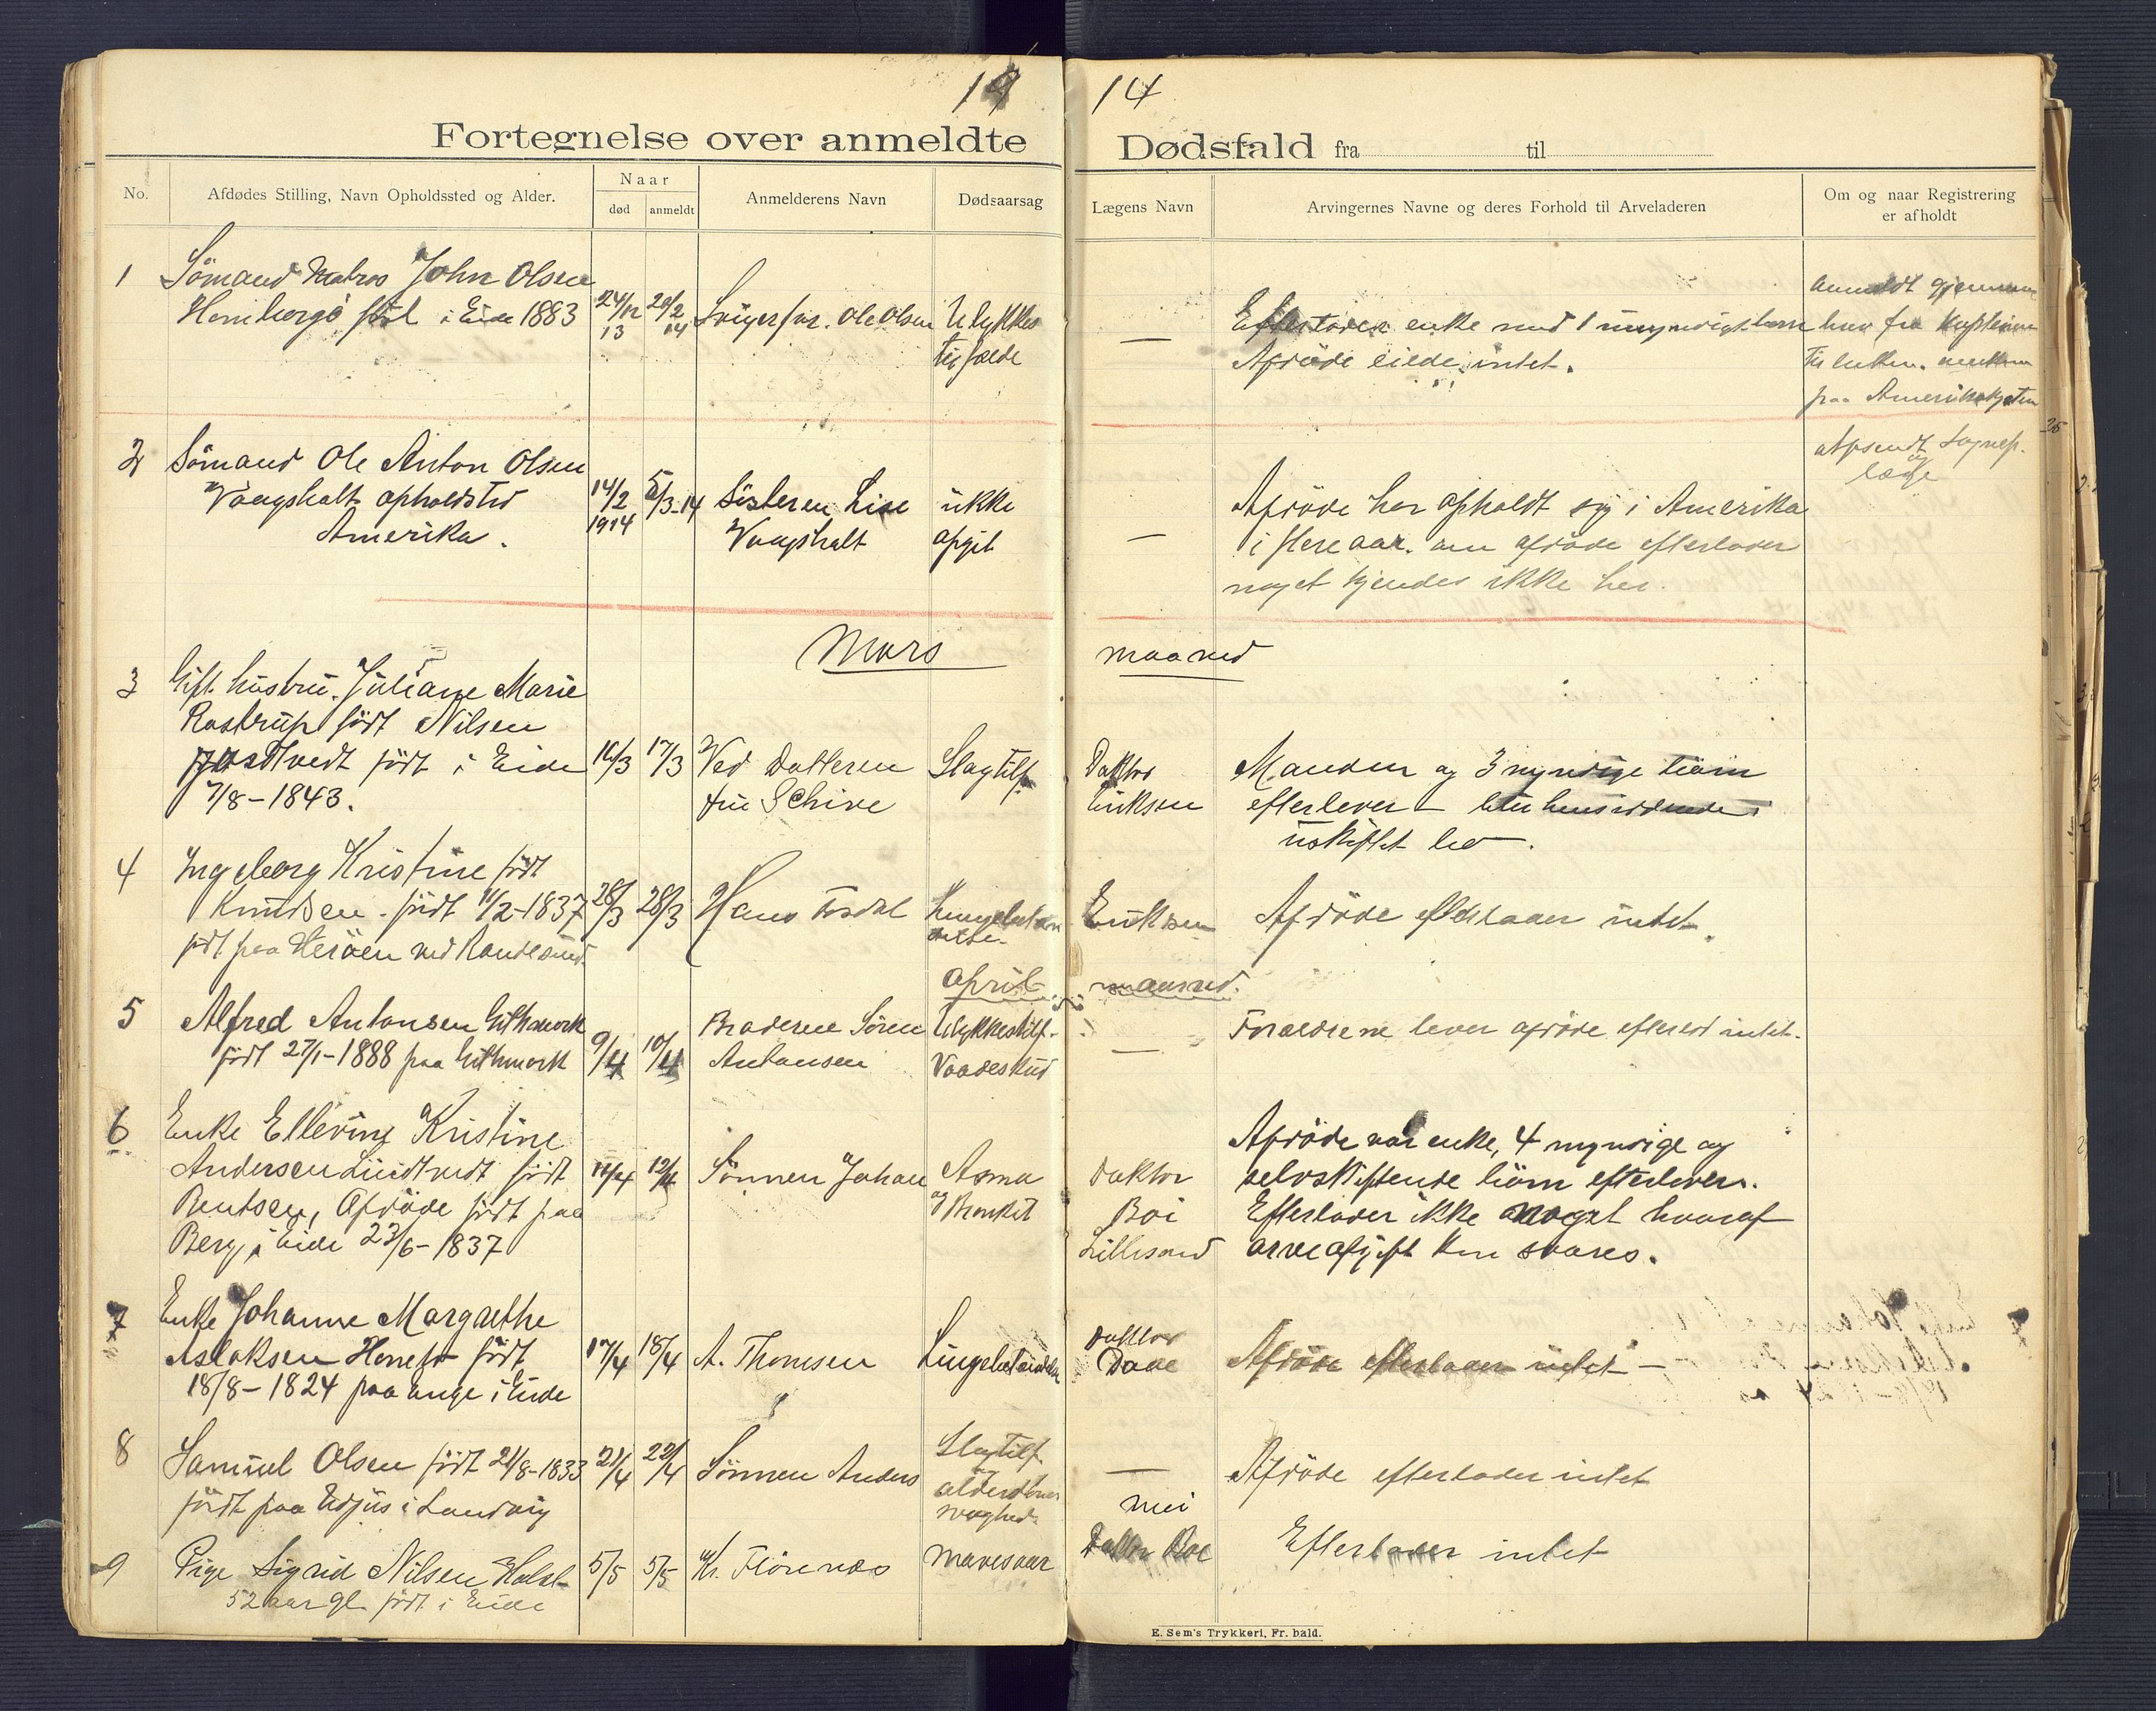 19 14
Fortegnelse over anmeldte Dødsfald fra til
No.
Afdødes Stilling, Navn Opholdssted og Alder.
Naar
død
anmeldt
Anmelderens Navn
Dødsaarsag
Lægens Navn
Arvingernes Navne og deres Forhold til Arveladeren
Om og naar Registrering
er afholdt
1
Sömand Matros John Olsen
Homborgö födt i Eide 1883
24/12
13
20/2
14
Svigerfar. Ole Olsen
Ulykkes
tilfælde
—
Efterlader enke med 1 umyndigt barn
Afdöde eiede intet.
anmeldt gjennem
brev fra Kapteinen
til enken.
paa Amerikakysten
2
Sömand Ole Anton Olsen
Vaagsholt opholdsted
Amerika.
14/2
1914
5/3-14
Sösteren Lise
Vaagsholt
ikke
opgit
—
Afdöde har opholdt sig i Amerika
i flere aar. om afdöde efterlader
noget kjendes ikke her.
afsendt Sognep.
og
læge
Mars maaned
3
Gift hustru. Juliane Marie
Rostrup födt Nilsen
födt i Eide
7/8-1843.
16/3
17/3
Ved Datteren
fru Schive
Slagtilf.
Doktor
Eriksen
Manden og 3 myndige börn
efterlever - hensiddende i
uskiftet bo.
4
Ingeborg Kristine födt
Knudsen. födt 11/2-1837
födt paa Heröen ved Randesund.
28/3
28/3
Hans
Eriksen
Afdöde efterlader intet.
April maaned.
5
Alfred Antonsen Githmork
födt 27/1-1888 paa Githmork
9/4
10/4
Broderen Sören
Antonsen
Ulykkestilf.
Vaadeskud
—
Forældrene lever afdöde efterlod intet.
6
Enke Ellevine Kristine
Andersen Lundtvedt födt
Bentsen, Afdöde födt paa
Berg i Eide 23/6-1837
11/4
12/4
Sönnen Johan
Asma
og Bronkit
Doktor
Boe
Lillesand
Afdöde var enke, 4 myndige og
selvskiftende börn efterlever.
Efterlader ikke noget hvoraf
arveafgift kan svares.
7
Enke Johanne Margrethe
Aslaksen födt
18/8-1824 paa Enge i Eide
17/4
18/4
A. Thomsen
Lungebetændelse
Doktor
Afdöde efterlader intet —
8
Samuel Olsen födt 21/8-1833
födt paa i Landvig
21/4
22/4
Sönnen Anders
Slagtilf.
alderdoms
svaghed.
—
Afdöde efterlader intet
mei
9
Pige Sigrid Nilsen
52 aar gl. födt i Eide
5/5
5/5
Kr. Flörenæs
Mavesaar
Doktor Boe
Efterlader intet
E. Sem's Trykkeri, Fr. hald.